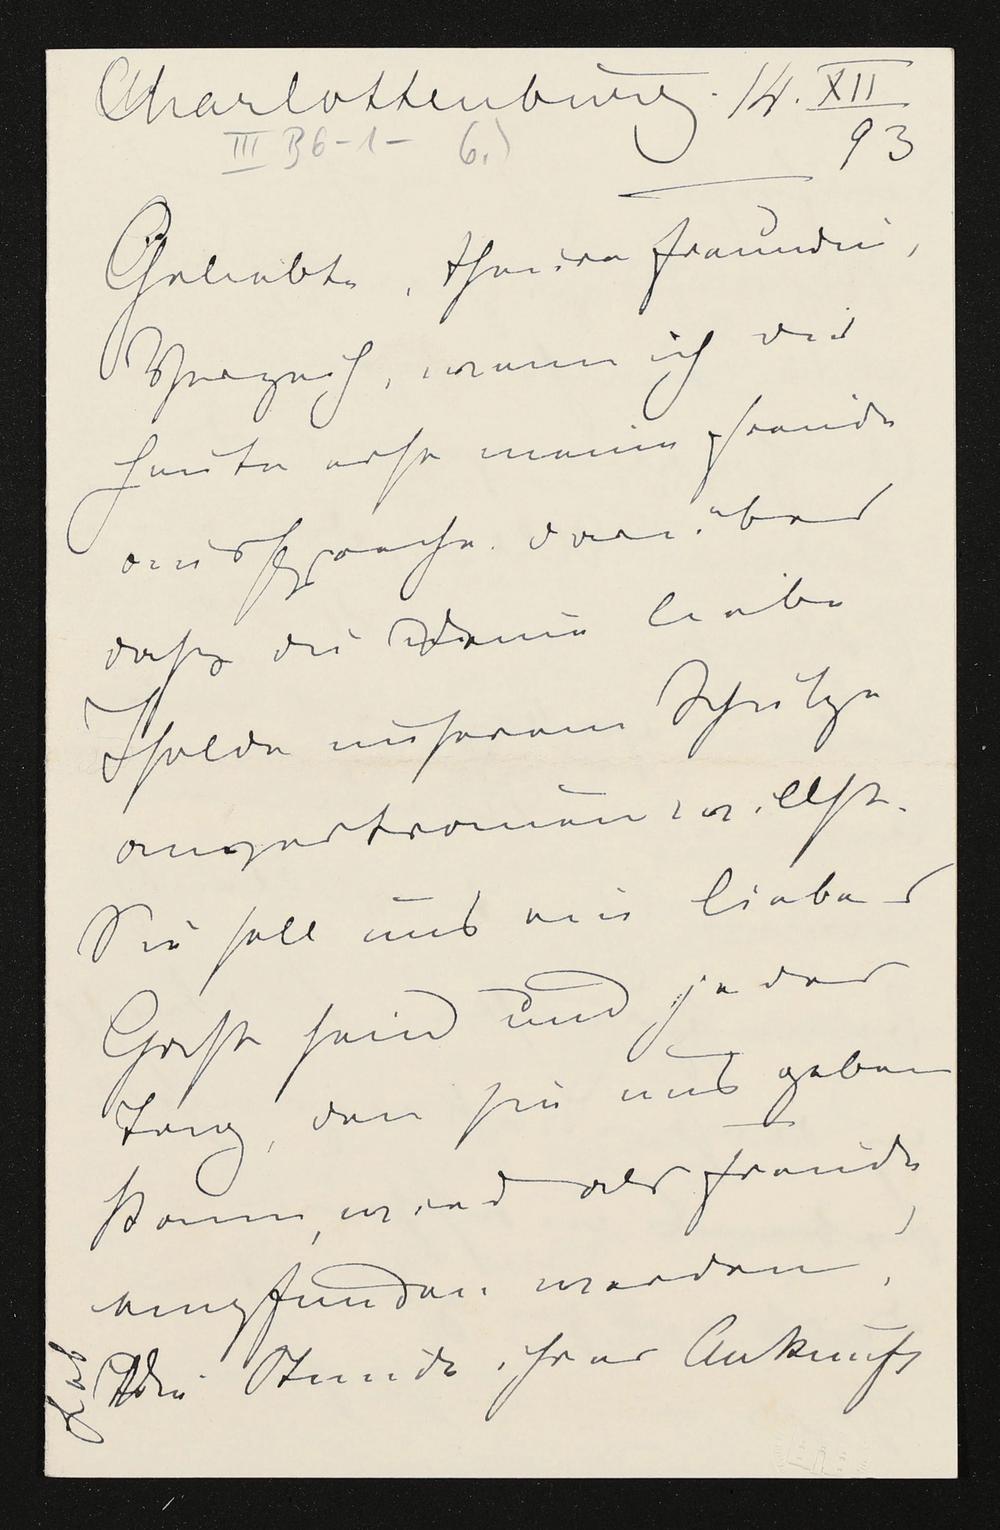 Charlottenburg. 14. XII
93
III B6-1- 6.)
Geliebte, theure Freundin,
Verzeih, wenn ich dir
heute erst meine Freude
ausspreche darüber
daß du Deine liebe
Isolde unserem Schutze
anvertrauen willst.
Sie soll uns ein lieber
Gast sein und jeder
Tag, den sie uns geben
kann, wird als Freude
empfunden werden,
Die Stunde ihrer Ankunft